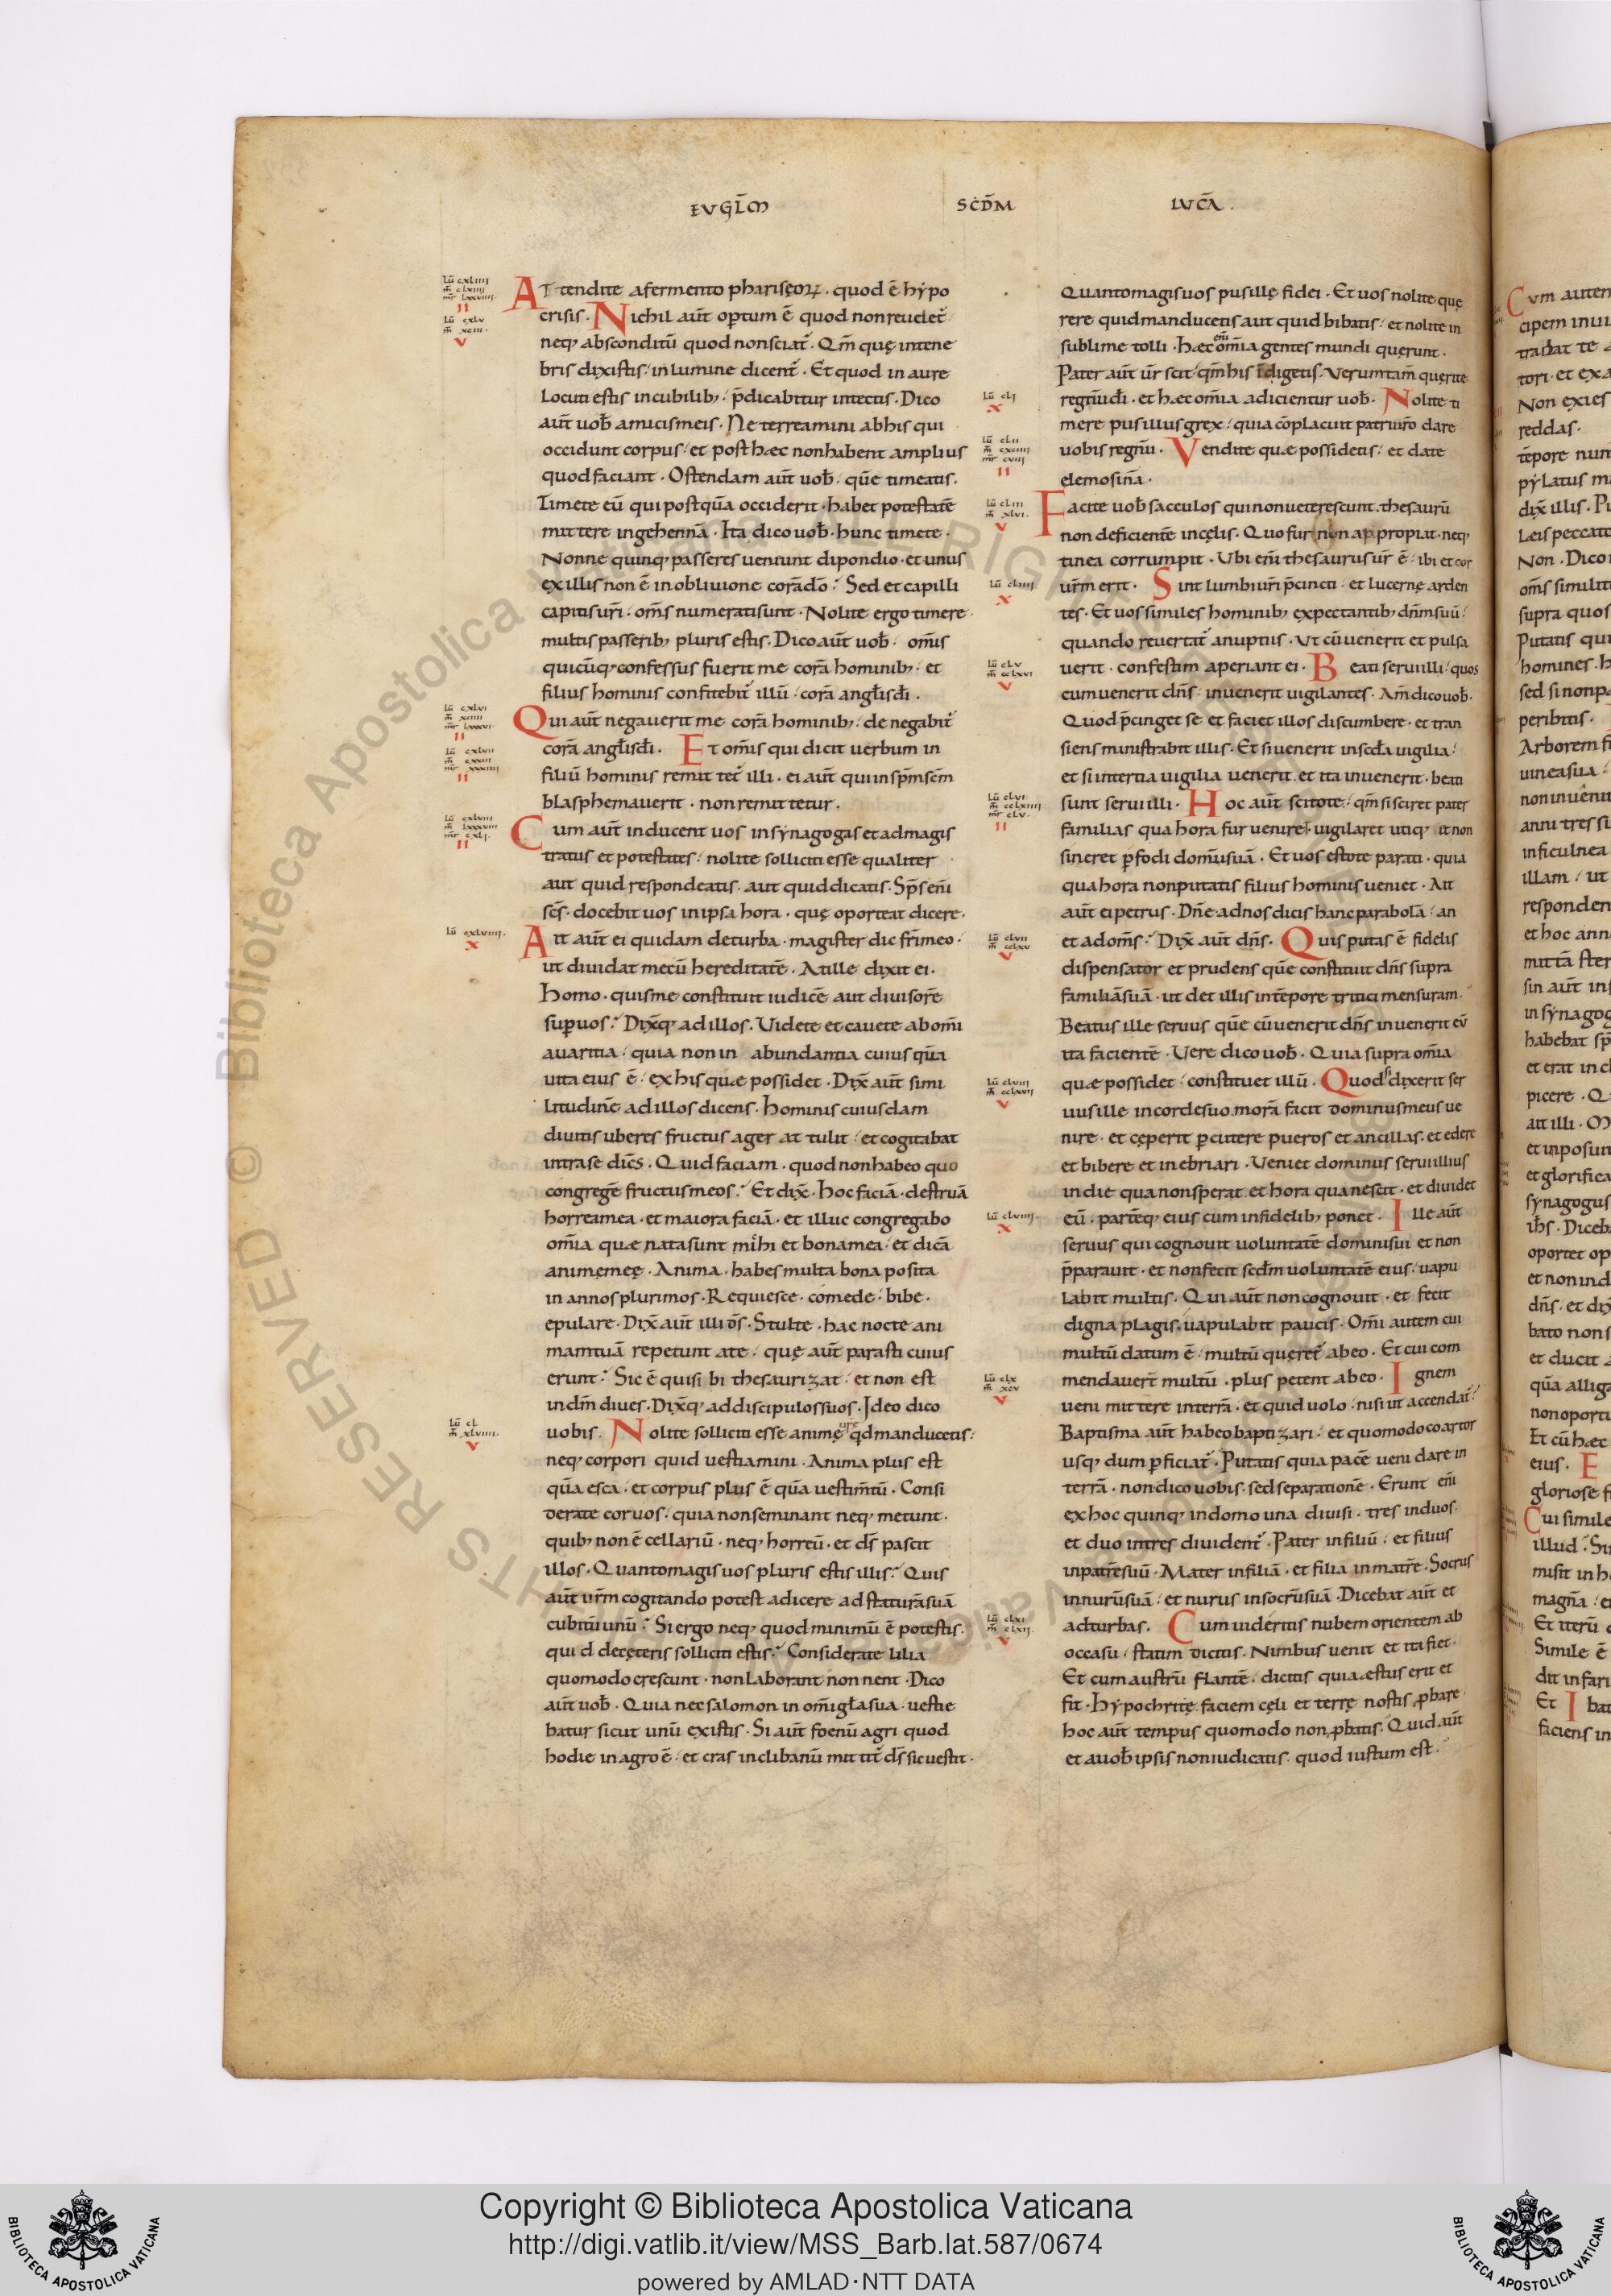 EVGL̄M SCD̄M LVCĀ.
Attendite afermento pharisęoꝝ· quod ē hypo
crisis· Nichil aūt optum ē quod nonreuelet᷑·
neq; absconditū quod nonsciat᷑· Qm̄ quę intene
bris dixistis· in lumine dicent᷑· Et quod in aure
Locuti estis incubilib; p̄dicabitur intectis· Dico
aūt uob̄ amicismeis· Ne terreamini abhis qui
occidunt corpus· et post hæc nonhabent amplius
quod faciant· Ostendam aūt uob̄· quē timeatis·
Timete eū qui postquā occiderit· habet potestatē
mittere ingehennā· Ita dico uob̄· hunc timete·
Nonne quinq; passeres ueniunt dipondio· et unus
exillis non ē in obliuione corād̄o? Sed et capilli
capitisur̄i· om̄s numeratisunt· Nolite ergo timere·
multis passerib; pluris estis· Dico aūt uob̄· om̄is
quicūq; confessus fuerit me corā hominib; et
filius hominis confitebit᷑ illū· corā angl̄isd̄i·
Qui aūt negauerit me corā hominib; de negabit᷑
corā angl̄isd̄i· Et om̄is qui dicit uerbum in
filiū hominis remittet᷑ illi· ei aūt qui insp̄msc̄m
blasphemauerit· nonremittetur·
Cum aūt inducent uos insynagogas etadmagis
tratus et potestates· nolite solliciti esse qualiter
aut quid respondeatis· aut quid dicatis· Sp̄s en̄i
sc̄s· docebit uos inipsa hora· quę oporteat dicere·
Ait aūt ei quidam deturba· magister dic fr̄imeo·
ut diuidat mecū hereditatē· Atille dixit ei·
Homo· quisme constituit iudicē aut diuisorē
sup̄uos? Dix̄q; adillos· Videte et cauete abom̄i
auaritia· quia non in abundantia cuius quā
uita eius ē· ex his quæ possidet· Dix̄ aūt simi
litudinē adillos dicens· Hominis cuiusdam
diuitis uberes fructus ager attulit· et cogitabat
intrase dic̄s· Quid faciam· quod nonhabeo quo
congregē fructusmeos? Et dix̄· Hoc faciā· destruā
horreamea· et maiora faciā· et illuc congregabo
om̄ia quæ natasunt mihi et bonamea· et dicā
animęmeę· Anima· habes multa bona posita
in annos plurimos· Requiesce· comede· bibe·
epulare· Dix̄ aūt illi d̄s· Stulte· hac nocte ani
mamtuā repetunt ate· quę aūt parasti cuius
erunt? Sic ē quisi bi thesaurizat· et non est
ind̄m diues· Dix̄q; addiscipulossuos· Ideo dico
uobis· Nolite solliciti esse animę ur̄e qd manducetis·
neq; corpori quid uestiamini· Anima plus est
quā esca· et corpus plus ē quā uestim̄tū· Consi
derate coruos· quia nonseminant neq; metunt·
quib; non ē cellariū· neq; horreū· et d̄s pascit
illos· Quantomagis uos pluris estis illis? Quis
aūt ur̄m cogitando potest adicere ad staturāsuā
cubitū unū? Si ergo neq; quod minimū ē potestis·
qui d decęteris solliciti estis? Considerate lilia
quomodo crescunt· nonlaborant non nent· Dico
aūt uob̄· Quia nec salomon in om̄i gl̄a sua· uestie
batur sicut unū existis· Si aūt foenū agri quod
hodie in agro ē· et cras inclibanū mittit᷑ d̄s sic uestit·
Quantomagis uos pusillę fidei· Et uos nolite quę
rere quid manducetis aut quid bibatis· et nolite in
sublime tolli· Hæc en̄i om̄ia gentes mundi querunt·
Pater aūt ur̄ scit· qm̄ his īdigetis· Verumtam̄ quęrite
regnūd̄i· et hæc om̄ia adicientur uob̄· Nolite ti
mere pusillus grex· quia cōplacuit patriur̄o dare
uobis regnū· Vendite quæ possidetis· et date
elemosinā·
Facite uob̄ sacculos qui non ueterescunt· thesaurū
non deficientē incęlis· Quo fur non appropiat· neq;
tinea corrumpit· Ubi en̄i thesaurus ur̄ ē· ibi et cor
ur̄m erit· Sint lumbiur̄i p̄cincti· et lucernę arden
tes· Et uos similes hominib; expectantib; dn̄msuū·
quando reuertat᷑ anuptiis· Ut cūuenerit et pulsa
uerit· confestim aperiant ei· Beati serui illi· quos
cum uenerit dn̄s· inuenerit uigilantes· Am̄ dico uob̄·
Quod p̄cinget se et faciet illos discumbere· et tran
siens ministrabit illis· Et siuenerit inscd̄a uigilia·
et si intertia uigilia uenerit· et ita inuenerit· beati
sunt serui illi· Hoc aūt scitote· qm̄ si sciret pater
familias qua hora fur ueniret· uigilaret utiq; et non
sineret p̄fodi domūsuā· Et uos estote parati· quia
qua hora nonputatis filius hominis ueniet· Ait
aūt ei petrus· Dn̄e adnos dicis hanc parabolā· an
et adom̄s? Dix̄ aūt dn̄s· Quis putas ē fidelis
dispensator et prudens quē constituit dn̄s supra
familiāsuā· ut det illis intēpore tritici mensuram·
Beatus ille seruus quē cūuenerit dn̄s inuenerit eū
ita facientē· Vere dico uob̄· Quia supra om̄ia
quæ possidet· constituet illū· Quod si dixerit ser
uus ille in corde suo· morā facit dominus meus ue
nire· et cęperit p̄cutere pueros et ancillas· et edere
et bibere et inebriari· Veniet dominus serui illius
indie qua nonsperat· et hora qua nescit· et diuidet
eū· partēq; eius cum infidelib; ponet· Ille aūt
seruus qui cognouit uoluntatē dominisui et non
p̄parauit· et nonfecit scd̄m uoluntatē eius· uapu
labit multis· Qui aūt non cognouit· et fecit
digna plagis· uapulabit paucis· Om̄i autem cui
multū datum ē· multū queret᷑ abeo· Et cui com
mendauer̄t multū· plus petent abeo· Ignem
ueni mittere interrā· et quid uolo· nisi ut accendat᷑?
Baptisma aūt habeo baptizari· et quomodo coartor
usq; dum p̄ficiat᷑· Putatis quia pacē ueni dare in
terrā· nondico uobis· sed separationē· Erunt en̄i
exhoc quinq; indomo una diuisi· tres induos·
et duo intres diuident᷑· Pater infiliū· et filius
inpatrēsuū· Mater infiliā· et filia inmatrē· Socrus
innurūsuā· et nurus insocrūsuā· Dicebat aūt et
adturbas· Cum uideritis nubem orientem ab
occasu· statim dicitis· Nimbus uenit et ita fiet·
Et cum austrū flantē· dicitis quia æstus erit et
fit· Hypochritę faciem cęli et terrę nostis p̄bare·
hoc aūt tempus quomodo non p̄batis· Quid aūt
et auob̄ ipsis noniudicatis· quod iustum est·
Copyright © Biblioteca Apostolica Vaticana
http://digi.vatlib.it/view/MSS_Barb.lat.587/0674
powered by AMLAD·NTT DATA
BIBLIOTECA APOSTOLICA VATICANA
BIBLIOTECA APOSTOLICA VATICANA